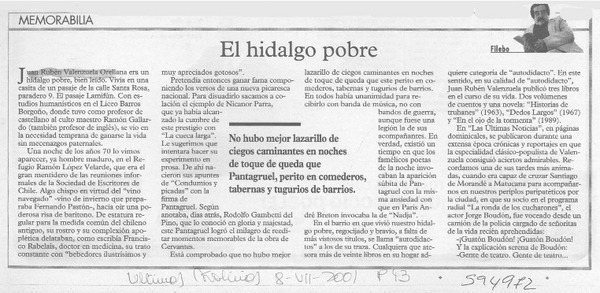 MEMORABILIA
El hidalgo pobre
Filebo
Juan Rubén Valenzuela Orellana era un
hidalgo pobre, bien leído. Vivía en una
casita de un pasaje de la calle Santa Rosa,
paradero 9. El pasaje Lamifún. Con es-
tudios humanísticos en el Liceo Barros
Borgoño, donde tuvo como profesor de
castellano al culto maestro Ramón Gallar-
do (también profesor de inglés), se vio en
la necesidad temprana de ganarse la vida
sin mecenazgos paternales.
Una noche de los años 70 lo vimos
aparecer, ya hombre maduro, en el Re-
fugio Ramón López Velarde, que era el
gran mentidero de las reuniones infor-
males de la Sociedad de Escritores de
Chile. Algo chispo en virtud del "vino
navegado" -vino de invierno que prepa-
raba Fernando Pastón-, hacía oír una po-
derosa risa de barítono. De estatura re-
gular para la medida común del chileno
antiguo, su rostro y su complexión apo-
plética delataban, como escribía Francis-
co Rabelais, doctor en medicina, su trato
constante con "bebedores ilustrísimos y
muy apreciados gotosos".
Pretendía entonces ganar fama compo-
niendo los versos de una nueva picaresca
nacional. Para disuadirlo sacamos a co-
lación el ejemplo de Nicanor Parra, que
ya había alcan-
zado la cumbre
de este prestigio
con "La cueca larga".
Le sugerimos que
intentara hacer su
experimento en
prosa. De ahí na-
cieron sus apuntes
de "Condumios y
caídas" y la
firma de
Pantagruel. Según
anotaba, días atrás, Rodolfo Gambetti del
Pino, que lo conoció en gloria y majestad,
este Pantagruel logró el milagro de reedi-
tar momentos memorables de la obra de
Cervantes.
Está comprobado que no hubo mejor
No hubo mejor lazarillo de
ciegos caminantes en noches
de toque de queda que
Pantagruel, perito en comederos,
tabernas y tugurios de barrios.
lazarillo de ciegos caminantes en noches
de toque de queda que este perito en co-
mederos, tabernas y tugurios de barrios.
En todos había unanimidad para re-
cibirlo con banda de música, no con
bandos de guerra,
aunque fuese una
legión la de sus
acompañantes. En
verdad, existió en
situación en que los
famélicos poetas
de la noche invo-
caban la aparición
súbita de Pan-
tagruel con la mis-
ma ansiedad con
que en París An-
dré Breton invocaba a la "Nadja".
En el barrio en que vivió nuestro hidal-
go pobre, regocijado y bravío, a falta de
más vistosos títulos, se llama "autodidac-
tos" a los de su traza. Cualquiera que ate-
sora más de veinte libros en su hogar ad-
quiere categoría de "autodidacto". En este
sentido, en su calidad de "autodidacto",
Juan Rubén Valenzuela publicó tres libros
en el curso de su vida. Dos volúmenes
de cuentos y una novela: "Historias de
truhanes" (1963), "Dedos Largos" (1967)
y "En el ojo de la tormenta" (1989).
En "Las Últimas Noticias", en páginas
dominicales, se publicaron durante una
extensa época crónicas y reportajes en que
la especialidad clásico-populista de Valen-
zuela consiguió aciertos admirables. Re-
cordamos una de sus tardes más anima-
das, cuando era capaz de cruzar Santiago
de Morandé a Matucana para acompañar-
nos en nuestros periplos peripatéticos por
la ciudad, en que su socio en el programa
radial "La ronda de los cucharones", el ac-
tor Jorge Boudón, fue voceado desde un
camión de la policía cargado de señoritas
de la vida recién aprehendidas:
-¡Guatón Boudón! ¡Guatón Boudón!
Y la explicación serena de Boudón:
-Gente de teatro. Gente de teatro...
Últimas Noticias 8-VII-2001 P.43
594972